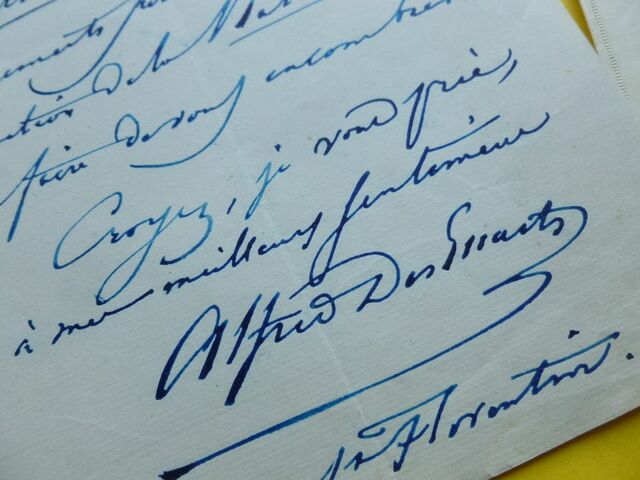 ction de la
faire de vous encombrer
Croyez, je vous prie,
à mes meilleurs sentiments
Alfred Des Essarts
Florentin.